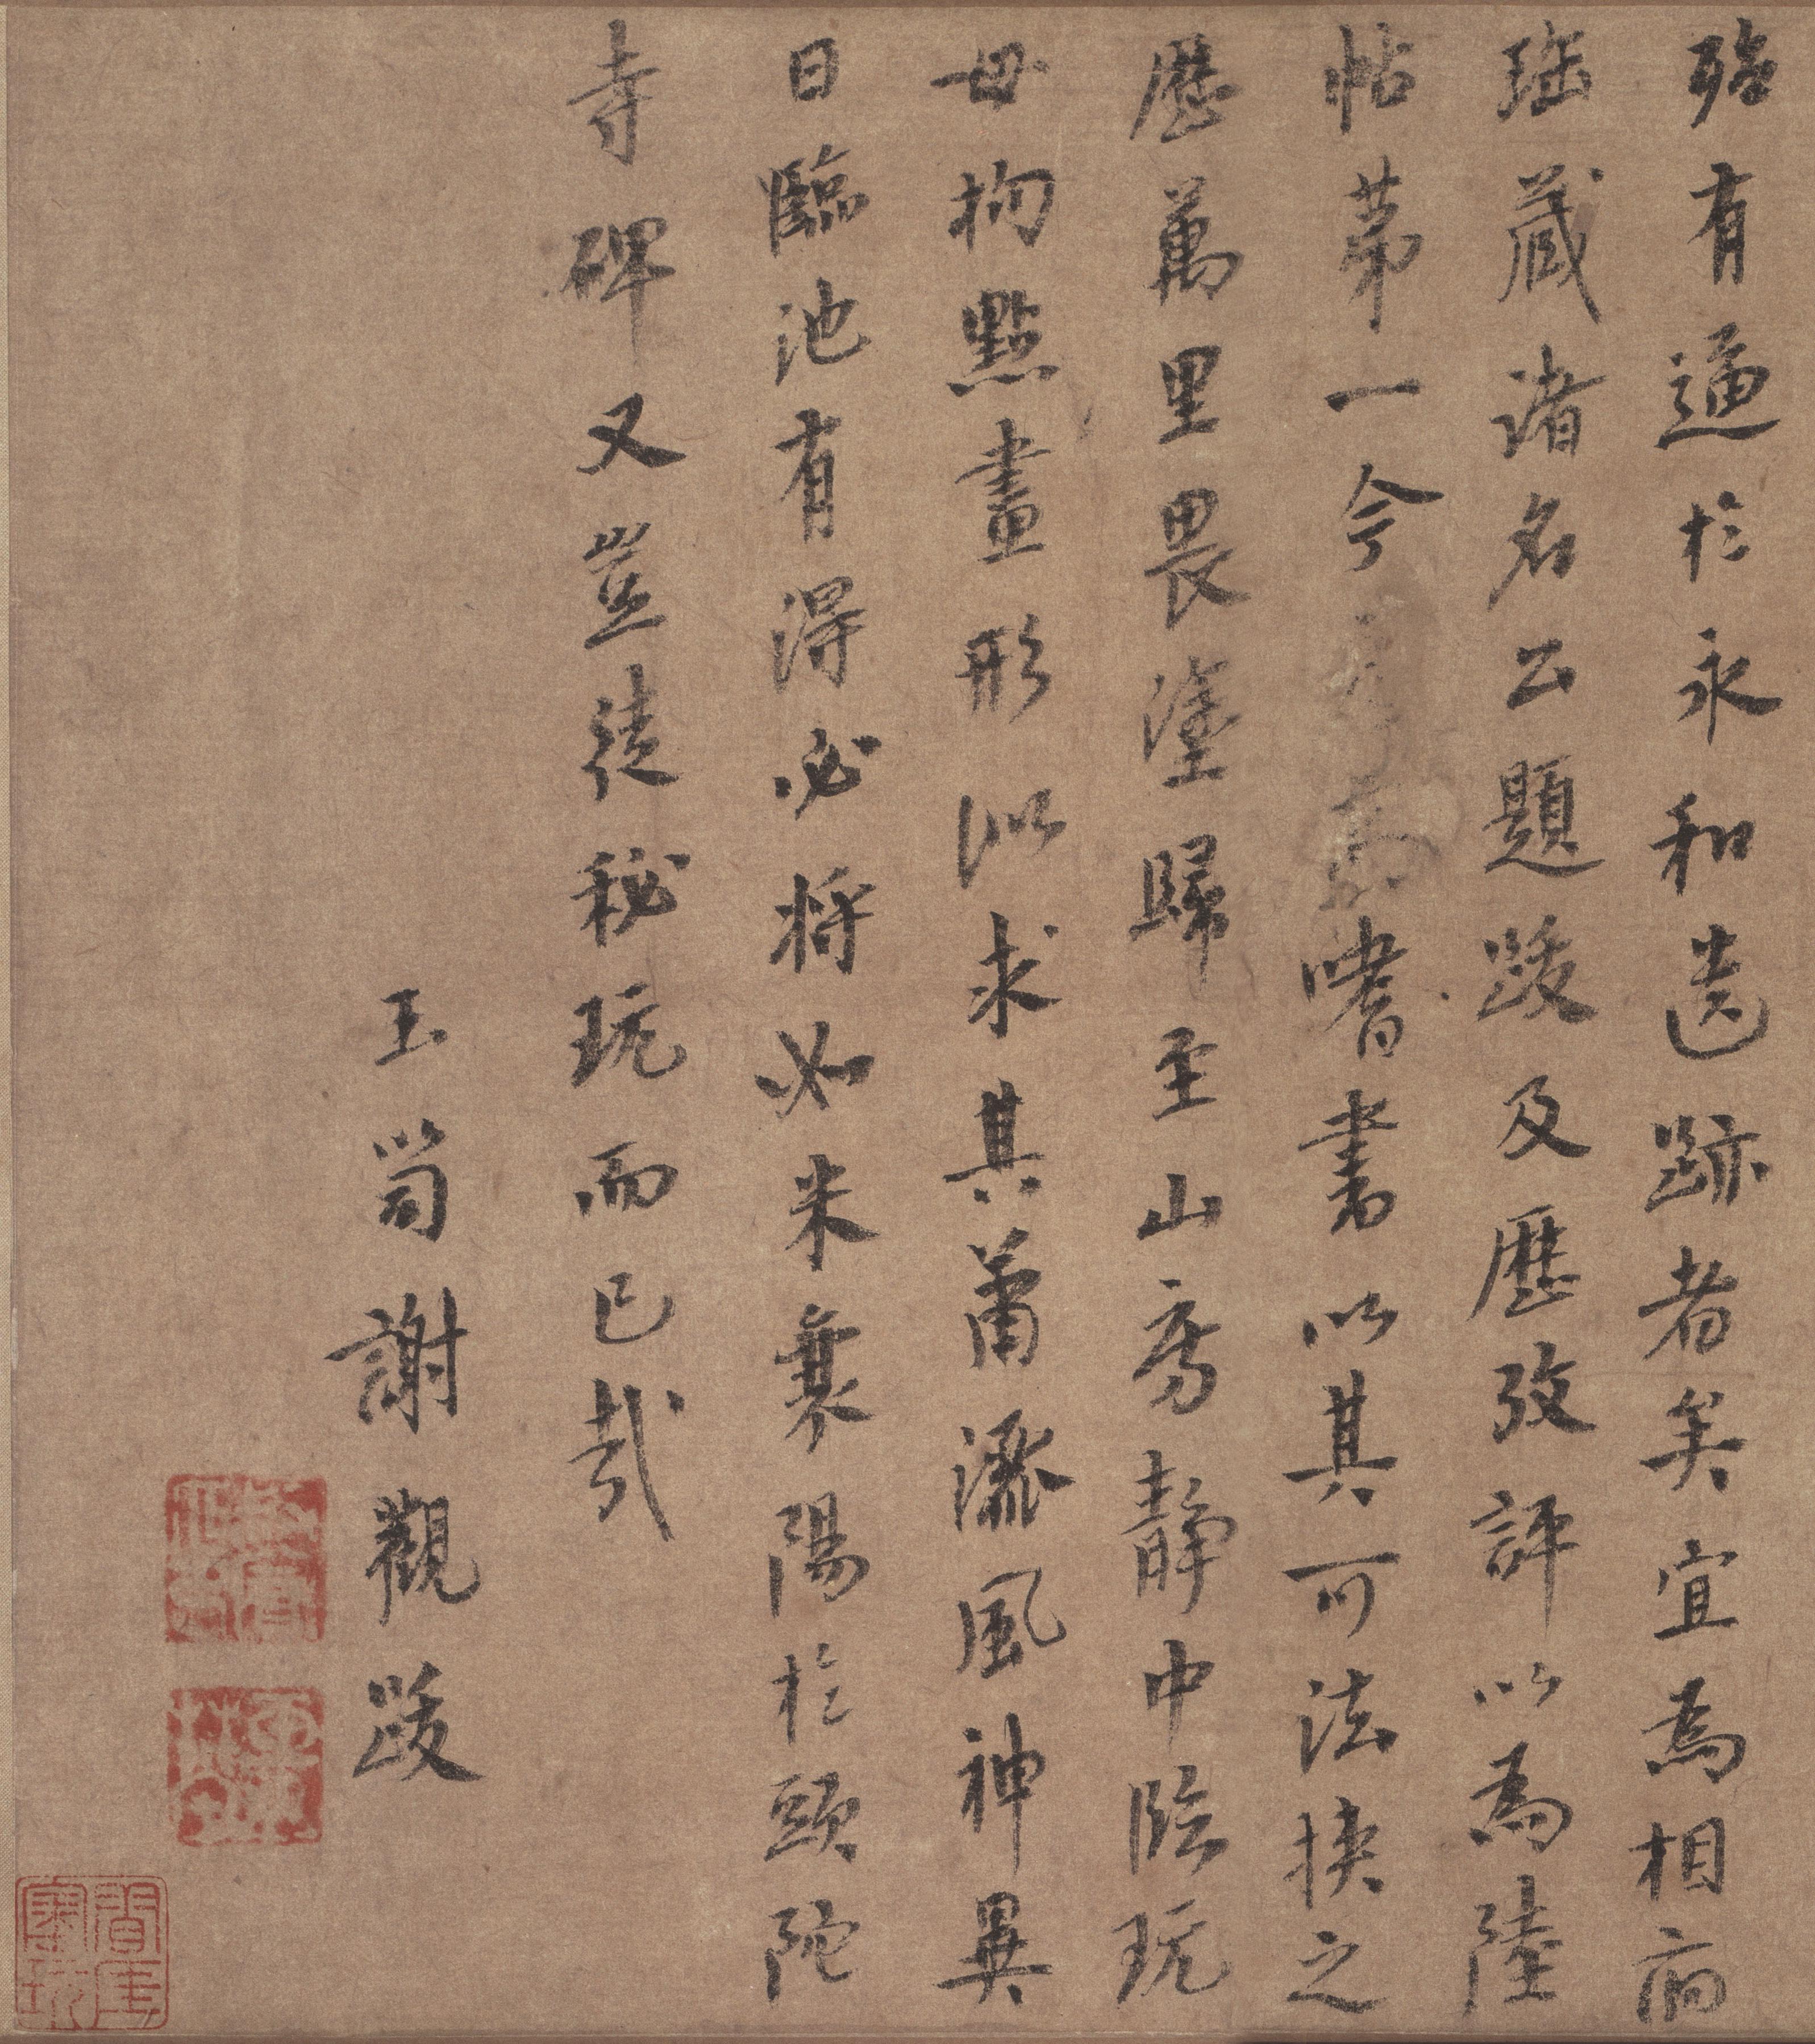 殆有逼於永和遺跡者矣宜爲相府
珤藏諸名公題跋及歷攷評以爲陸
帖第一今嗜書以其可法挾之
歷萬里畏塗歸至山房靜中臨玩
毋拘點畫形似求其蕭灑風神異
日臨池有得必將如米襄陽於頭陀
寺碑又豈徒秘玩而已哉
玉笥謝觀跋